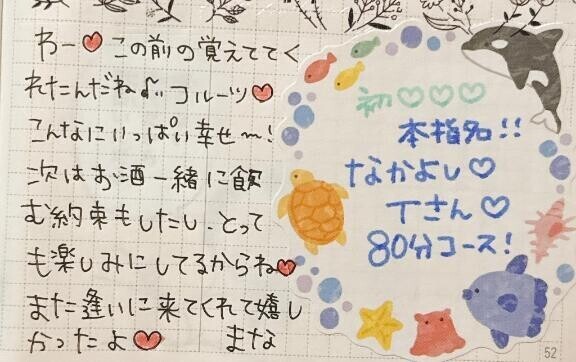 わー♥この前の覚えててく
れたんだね♪コルーツ♥
こんなにいっぱい幸せ〜!
次はお酒一緒に飲
む約束もしたし、とって
も楽しみにしてるからね♥
また逢いに来てくれて嬉し
かったよ♥ まな
初♡♡♡
本指名!!
なかよし♡
Tさん♡
80分コース!
52